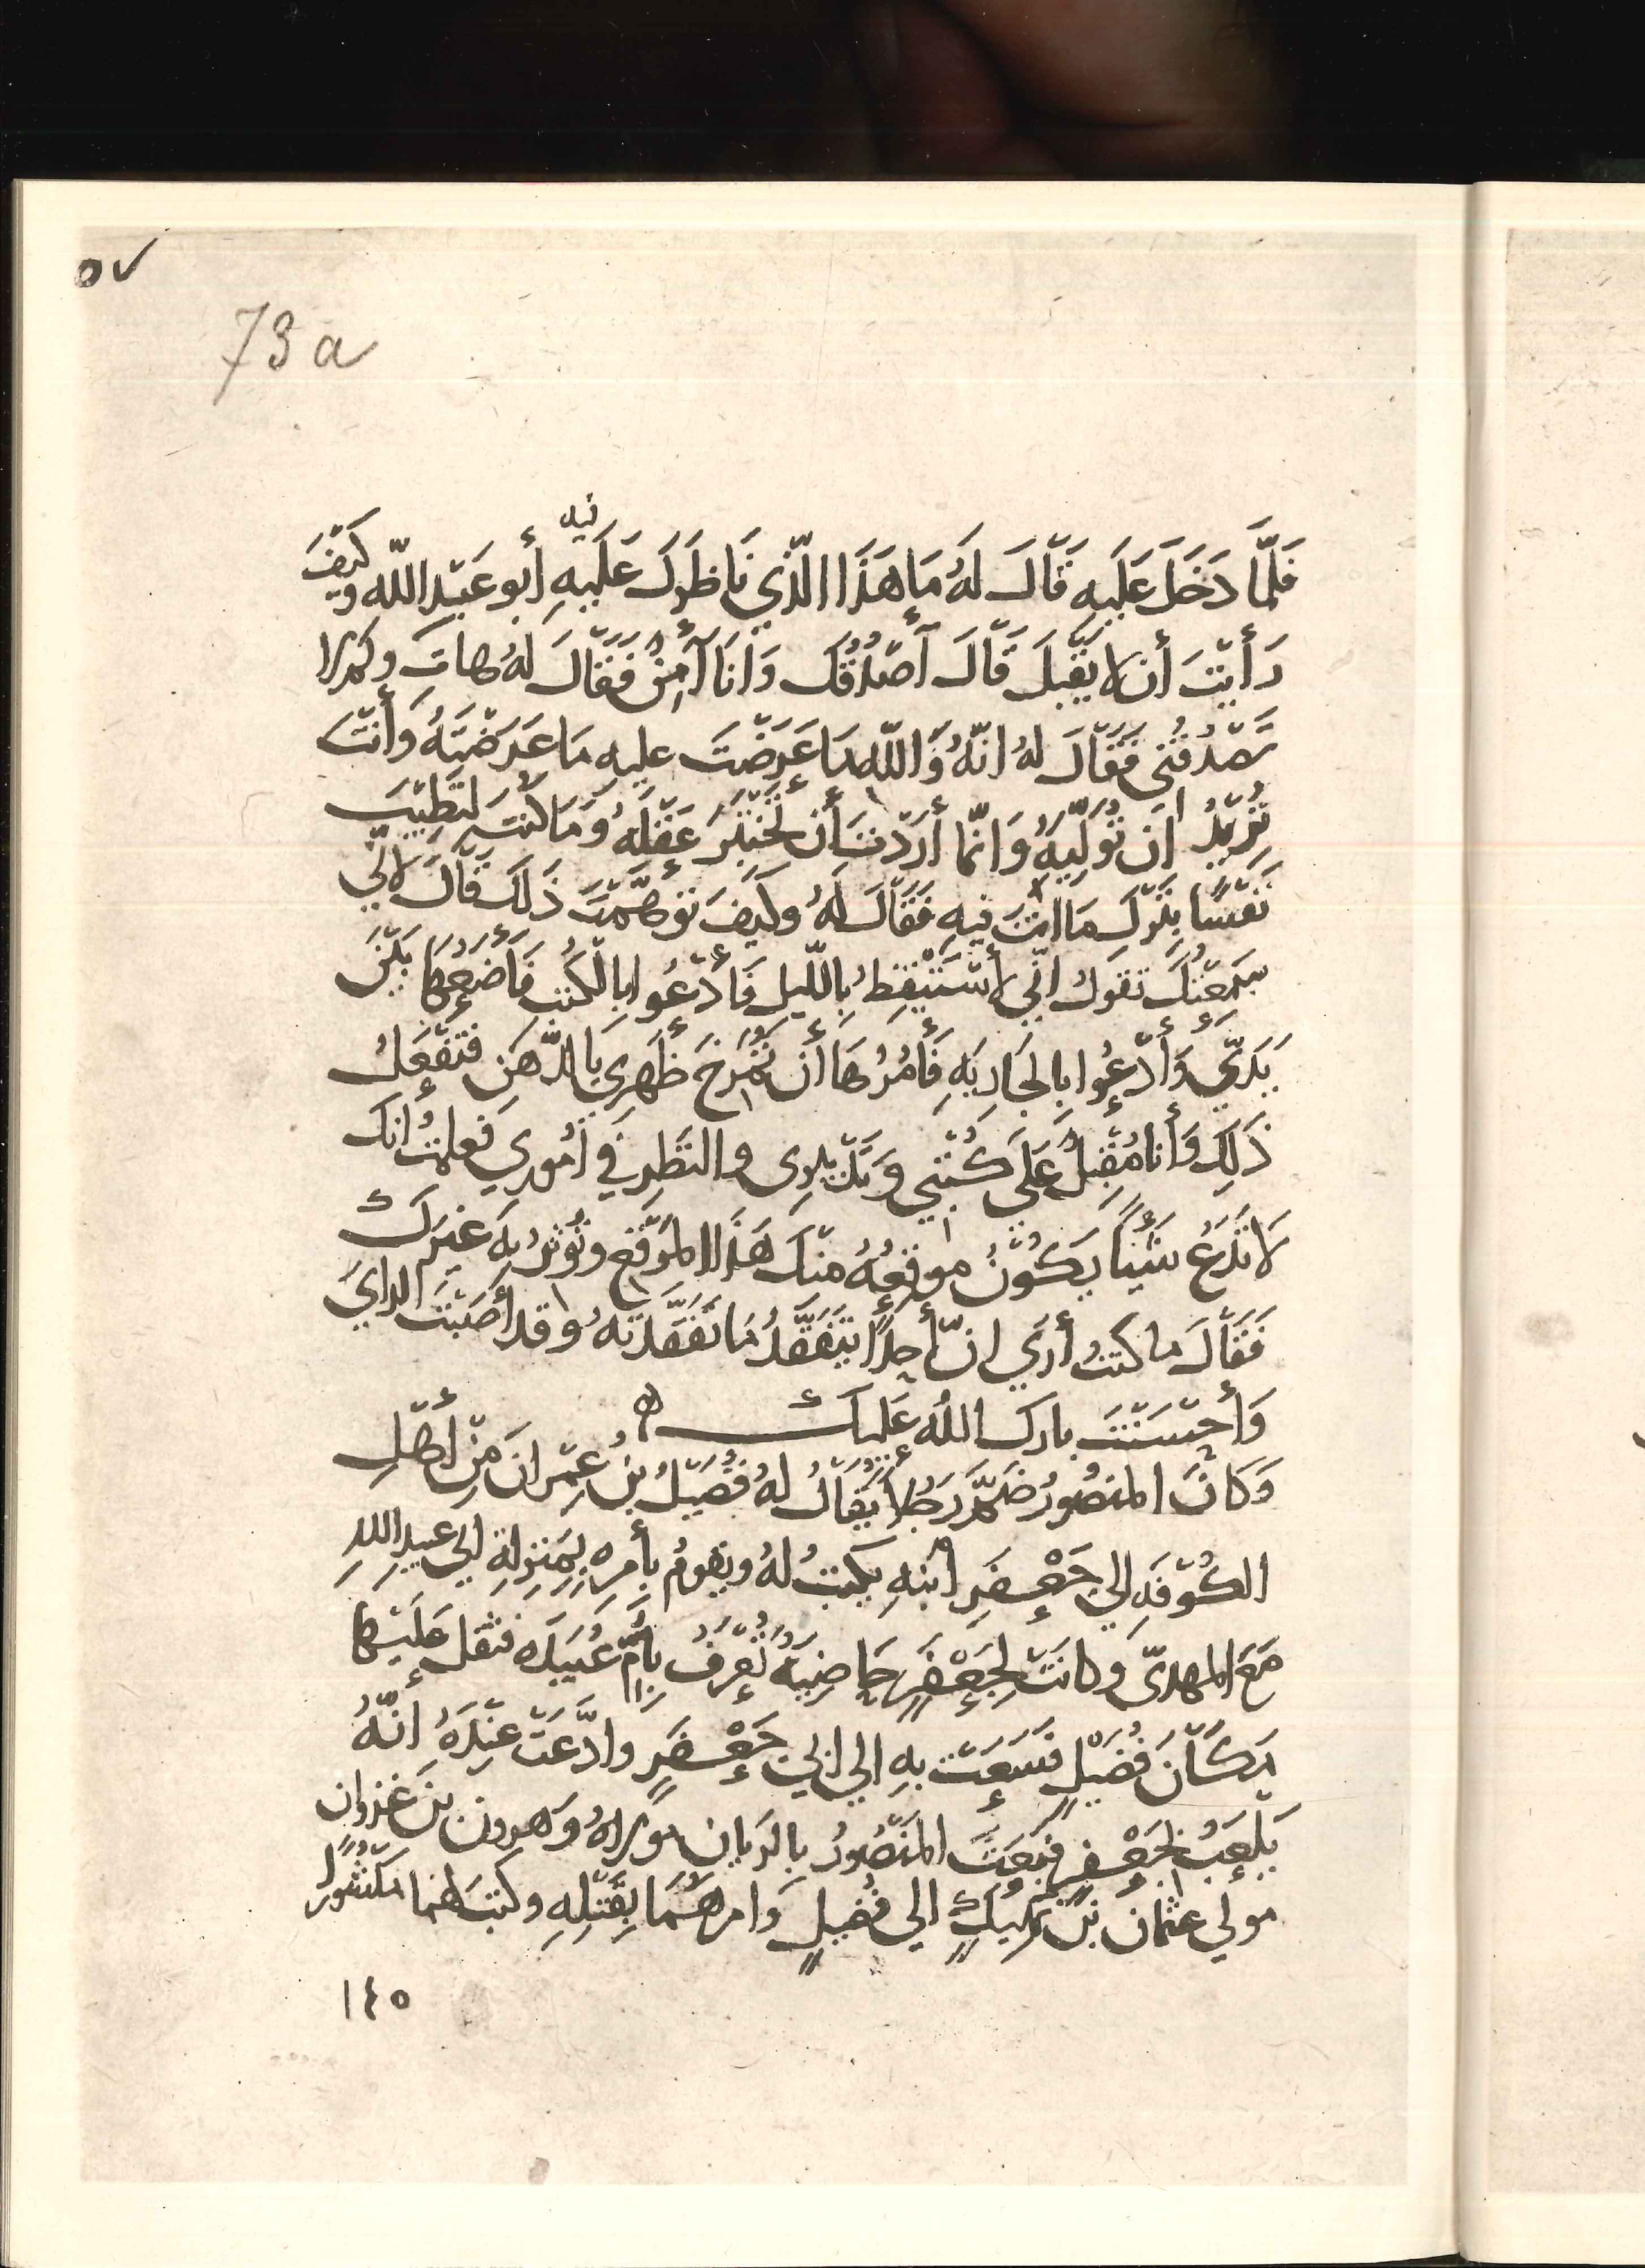 ٥٧
73 a
فيه
فَلَمَّا دَخَلَ عَلَيهِ قَالَ لَهُ مَا هَذَا الَّذِي نَاظَرَكَ عَلَيهِ أبو عَبْدِ اللّه وكَيْفَ
رَأيْتَ أن لا يَقْبَلَ قَالَ أصْدُقُكَ وَأنَا آمِنٌ فَقَالَ لهُ هاتِ وكم لا
تَصْدُقُني فَقَالَ لهُ انّهُ وَاللّهِ مَا عَرَضْتَ عليه مَا عَرَضْتَهُ وَأنْتَ
تُرِيْدُ أن تُوَلِّيَهُ وَانّما أرَدْتَ أن تَخْتَبِرَ عَقْلَهُ وَمَا كُنْتَ لِتَطِيْبَ
نَفْسًا بِتَرْكِ مَا انْتَ فِيهِ فَقَالَ لَهُ وكَيفَ تَوَهَّمْتَ ذَلكَ قَالَ لانّي
سَمِعْتُكَ تقول انّي لأسْتَيْقِظُ بِاللّيلِ فَأدْعُوا بِالكُتُبِ فَأضَعُهَا بَيْنَ
يَدَيَّ وَأدْعُوا بِالجَارِيَهِ فَأمُرُهَا أن تُمَرِّخَ ظَهرِي بَالدُّهنِ فتَفْعَلُ
ذَلِكَ وَأنا مُقْبِلٌ عَلَى كُتُبِي وَتَدْبِيرِى والنَّظَرِ فِي أمُورِي فعلمتُ انكَ
لَا تَدَعُ شَيْئًا يَكُوْنُ موقِعُهُ مِنْكَ هَذَا المَوْقِعِ وتُؤثِرُ بِهِ غَيْرَكَ
فَقَالَ ما كنتُ أرَي انّ أحدًا يَتَفَقَّدُ مَا تَفَقَّدْتَهُ وقد أصَبْتَ الرايَ
وَأحْسَنْتَ بارك اللهُ عَلَيك ه
وَكَانَ المنصُورُ ضَمَّ رَجُلاً يُقَالُ لهُ فُضَيْلُ بنُ عِمْرانَ مِنْ أهْلِ
الكُوْفَهِ إلي جَعْفَرِ ابنِهِ يكتبُ لهُ ويقومُ بأمرِهِ بِمَنْزِلةِ ابي عبيدِ اللهِ
مَعَ المهديّ وكانَتْ لِجَعْفَرٍ حَاضِنَةٌ تُعْرَفُ بِأمِّ عُبَيْدَه فثقلَ عَلَيْهَا
مَكَانَ فُضَيْلٍ فَسَعَتْ بهِ الي ابي جَعْفَرٍ وادَّعَتْ عِنْدَهُ انّهُ
يَلْعَبُ بِجَعْفرٍ فَبَعَثَ المَنْصُورُ بِالرَيانِ مَولاهُ وَهرون بْنَ غزوان
مولي عثمان بْنِ نَهيكٍ الي فُضَيلٍ وَامرهُمَا بِقَتْلِهِ وكتبَ لهما منْشُورًا
١٤٥